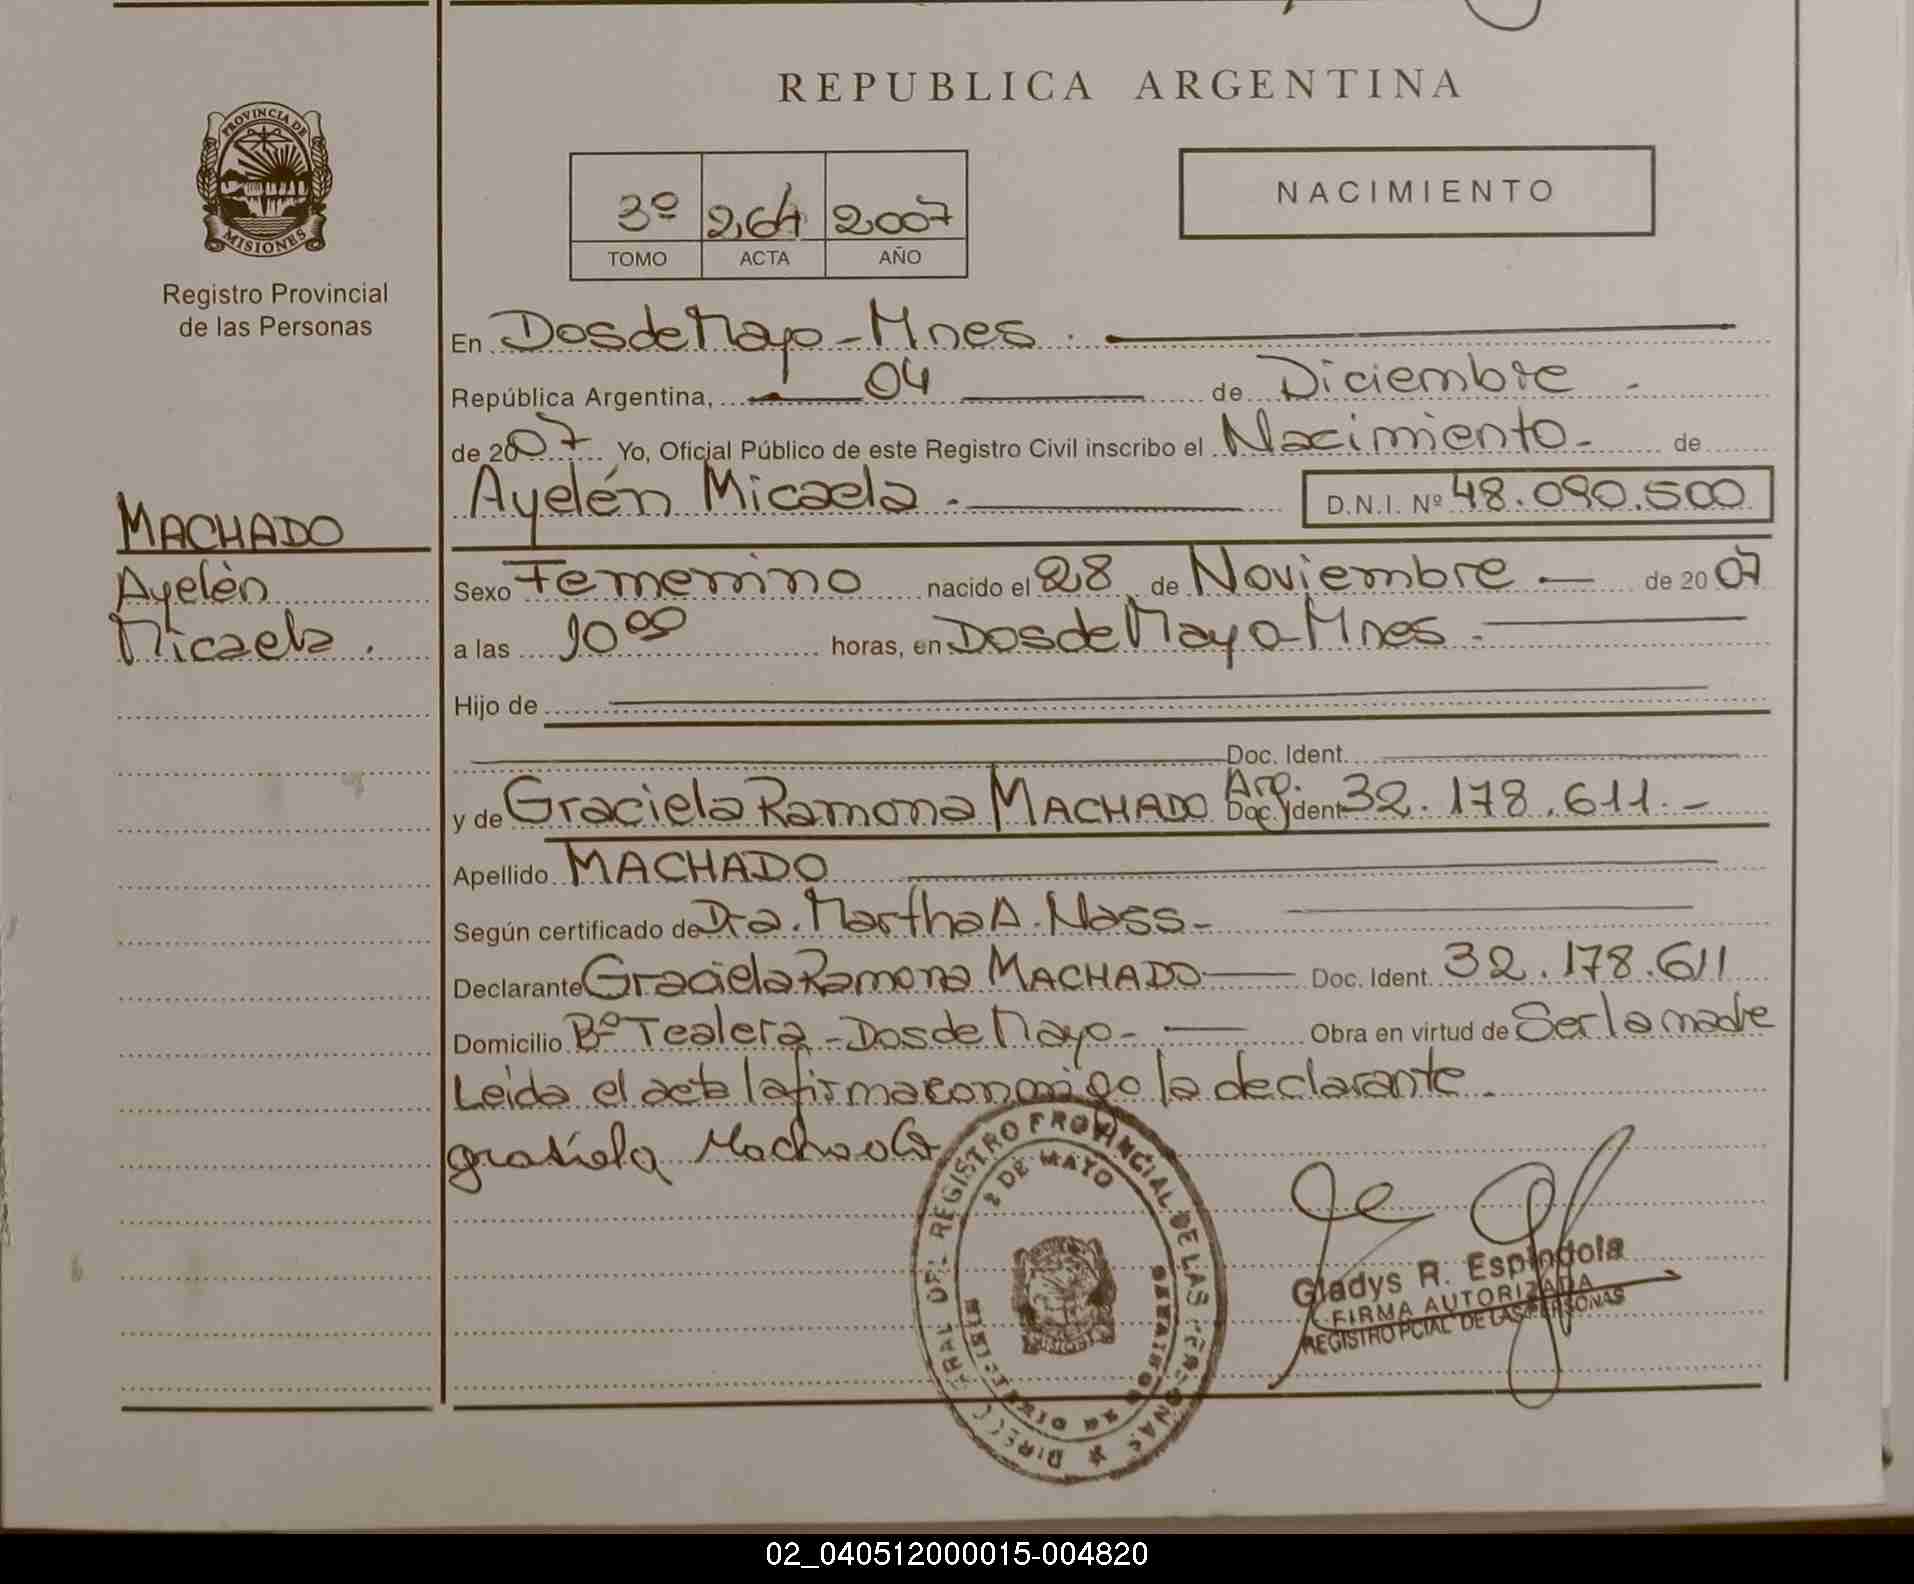 REPUBLICA ARGENTINA
PROVINCIA DE MISIONES
Registro Provincial
de las Personas
3º 264 2007
TOMO ACTA AÑO
NACIMIENTO
En Dos de Mayo - Mnes.
República Argentina, 04 de Diciembre -
de 2007 Yo, Oficial Público de este Registro Civil inscribo el Nacimiento - de
Ayelén Micaela - D.N.I. Nº 48.090.500
MACHADO
Ayelén
Micaela.
Sexo Femenino nacido el 28 de Noviembre - de 2007
a las 10 00 horas, en Dos de Mayo - Mnes -
Hijo de
Doc. Ident.
y de Graciela Ramona MACHADO Arg. Doc. Ident 32.178.611.-
Apellido MACHADO
Según certificado de Dra. Martha A. Nass -
Declarante Graciela Ramona MACHADO Doc. Ident. 32.178.611
Domicilio Bº Tealera - Dos de Mayo - Obra en virtud de Ser la madre
Leída el acta la firma conmigo la declarante -
graciela Machado
REGISTRO PROVINCIAL DE LAS PERSONAS
2 DE MAYO
Gladys R. Espindola
FIRMA AUTORIZADA
REGISTRO PCIAL DE LAS PERSONAS
02_040512000015-004820